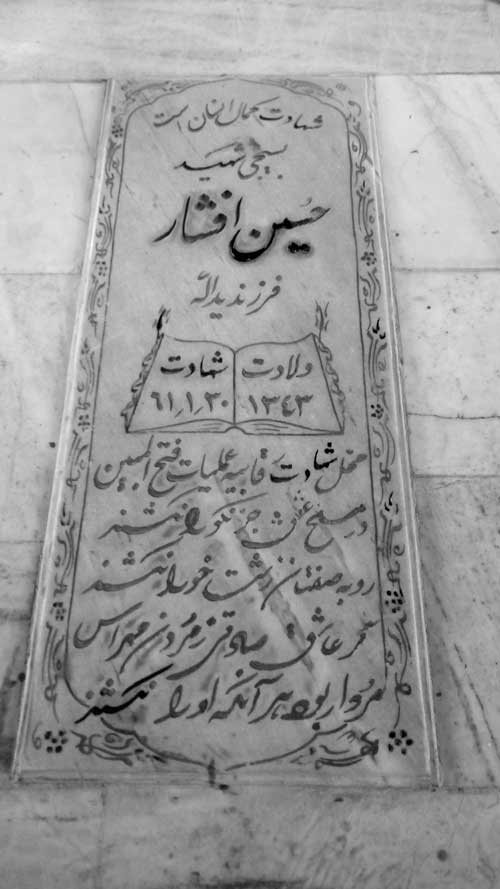 شهادت کمال انسان است
بسیجی شهید
حسین افشار
فرزند یداله
ولادت شهادت
۱۳۴۳ ۶۱٫۱٫۲۰
محل شهادت رقابیه عملیات فتح المبین
در مسلخ عشق جز نکو را نکشند
روبه صفتان زشت خو را نکشند
گر عاشق صادقی ز مردن مهراس
مردار بود هر آنکه او را نکشند